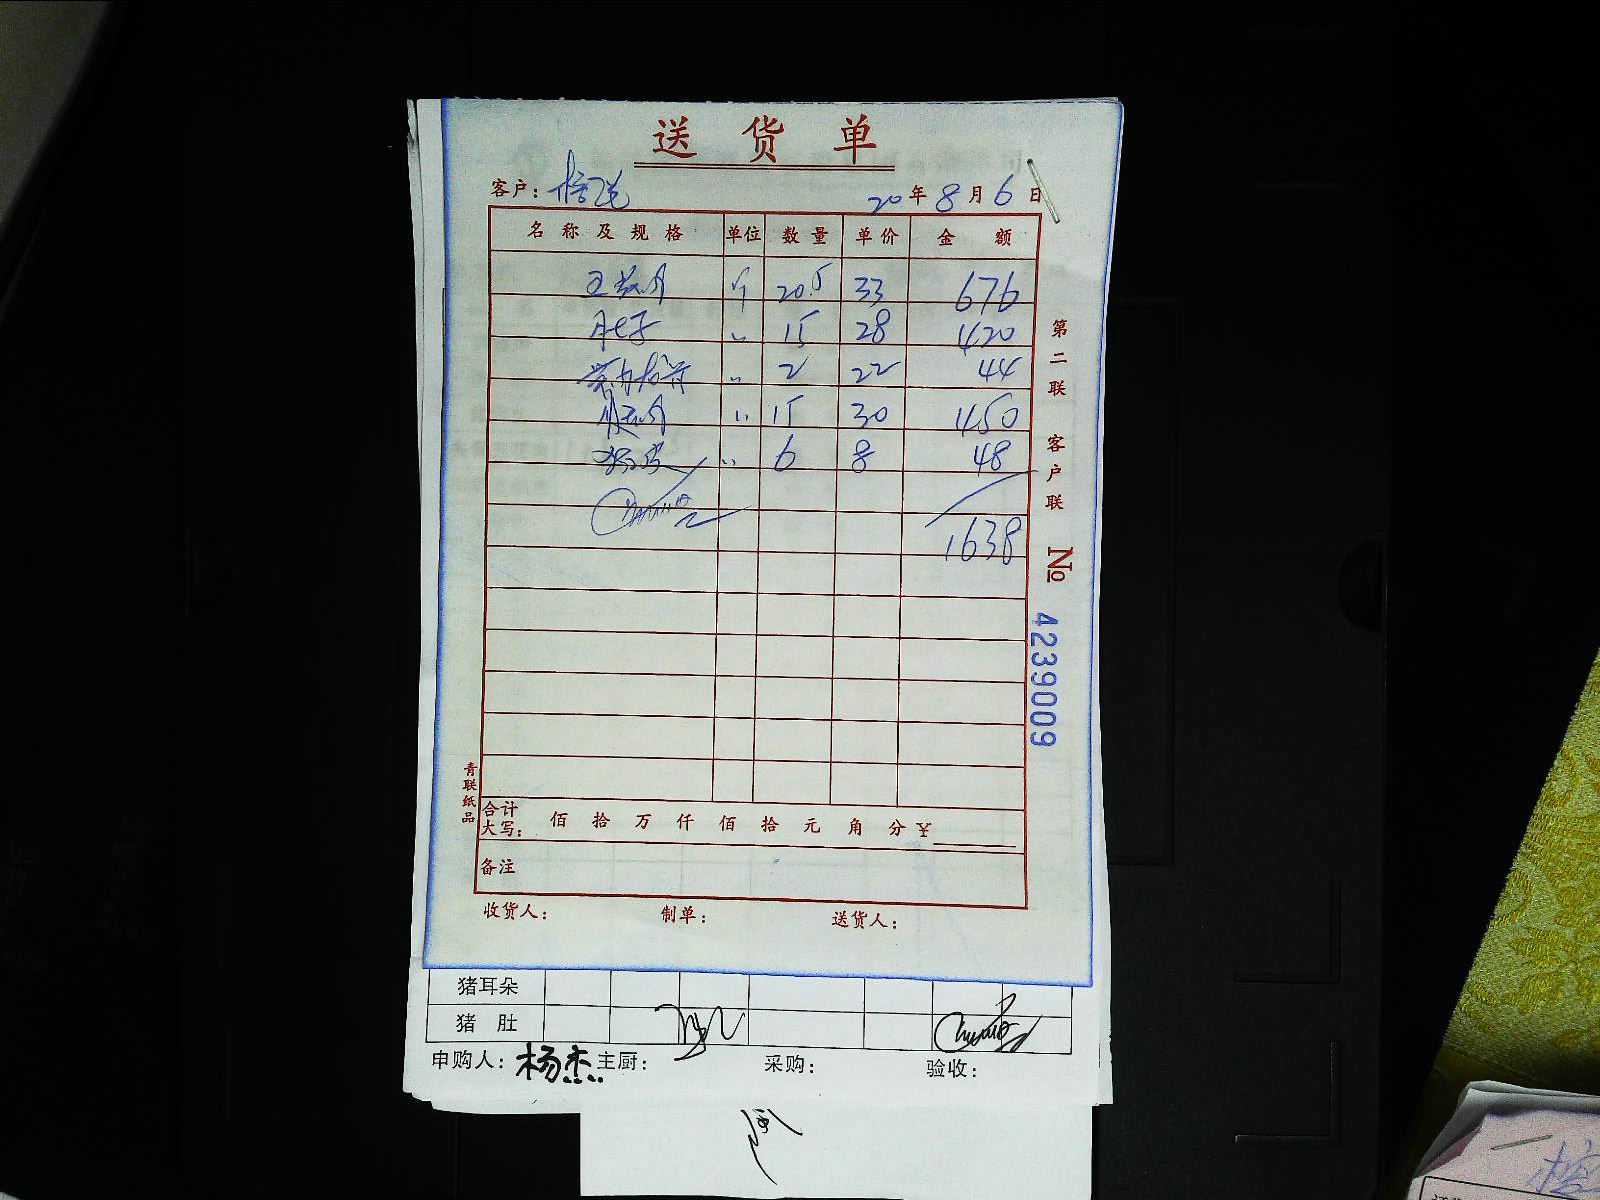 送货单
客户： 20年8月6日
名称及规格 单位 数量 单价 金额
斤 20.5 33 676
肚子 〃 15 28 420
〃 2 22 44
〃 15 30 450
〃 6 8 48
1638
第二联 客户联 No 4239009
青联纸品
合计大写： 佰 拾 万 仟 佰 拾 元 角 分 ¥
备注
收货人： 制单： 送货人：
猪耳朵
猪肚
申购人：杨杰 主厨： 采购： 验收：